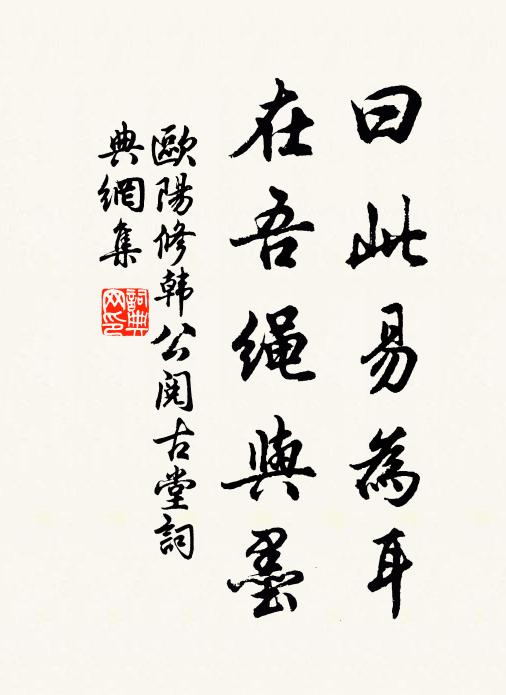 曰此易為耳
在吾绳與墨
歐陽修韩公閱古堂詞
典網集
詞典网印